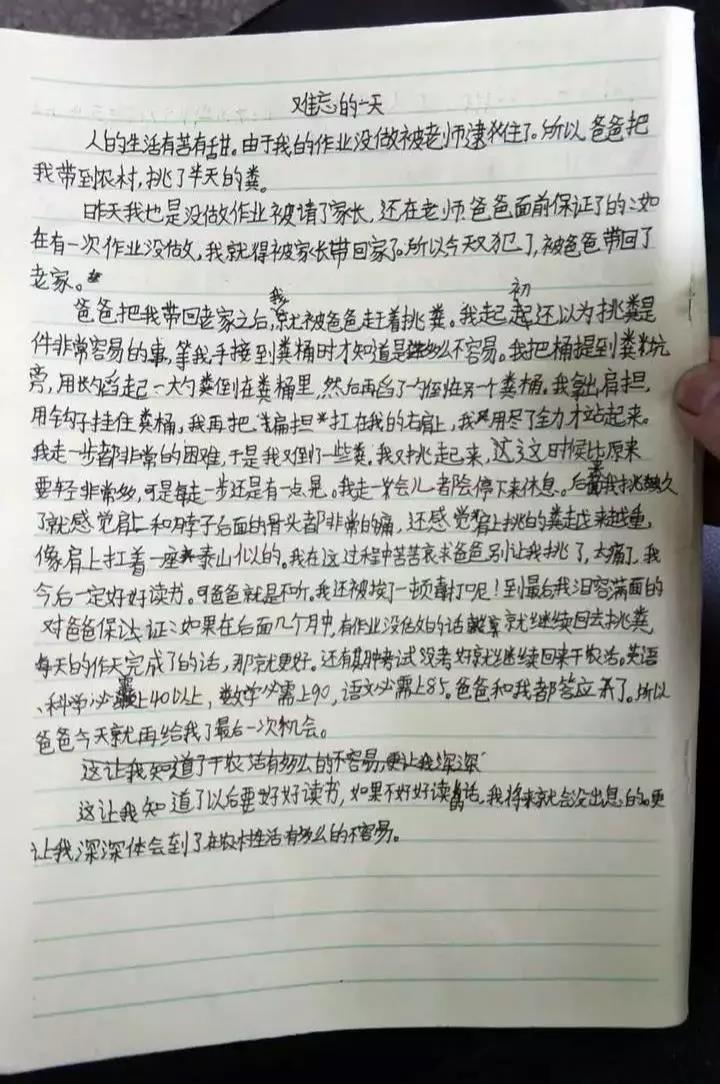 难忘的一天
人的生活有苦有甜。由于我的作业没做被老师逮犯住了。所以爸爸把
我带到农村,挑了半天的粪。
昨天我也是没做作业被请了家长,还在老师爸爸面前保证了的:如
在有一次作业没做,我就得被家长带回家了。所以今天又犯了,被爸爸带回了
老家。
爸爸把我带回老家之后,我就被爸爸赶着挑粪。我起初还以为挑粪是
件非常容易的事,等我手接到粪桶时才知道是多么不容易。我把桶提到粪坑
旁,用勺舀起一大勺粪倒在粪桶里,然后再舀了一勺倒在另一个粪桶。我拿出肩担,
用钩子挂住粪桶,我再把扁担扛在我的右肩上,我用尽了全力才站起来。
我走一步都非常的困难,于是我又倒了一些粪。我又挑起来,这这时候比原来
要轻非常多,可是每走一步还是有一点晃。我走一会儿都会停下来休息。后来我挑久
了就感觉肩上和脖子后面的骨头都非常的痛,还感觉肩上挑的粪越来越重,
像肩上扛着一座泰山似的。我在这过程中苦苦哀求爸爸别让我挑了,太痛了,我
今后一定好好读书。可爸爸就是不听。我还被挨了一顿毒打呢!到最后我泪容满面的
对爸爸保证:如果在后面几个月中,有作业没做的话就继续回去挑粪,
每天的作天完成了的话,那就更好。还有期中考试没考好就继续回来干农活。英语
、科学必需上40以上,数学必需上90,语文必需上85。爸爸和我都答应了。所以
爸爸今天就再给我了最后一次机会。
这让我知道了干农活有多么的不容易,更让我深深
这让我知道了以后要好好读书,如果不好好读书的话,我将来就会没出息的。更
让我深深体会到了在农村生活有多么的不容易。